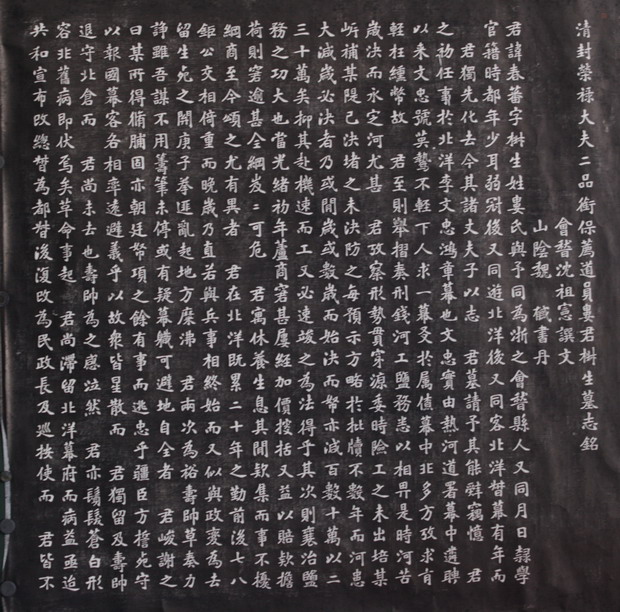 清封榮祿大夫二品銜保薦道員婁君樹生墓志銘
會稽沈祖憲撰文
山陰魏戫書丹
君諱春蕃字樹生姓婁氏與予同為浙之會稽縣人又同月日隸學
官籍時都年少耳弱冠後又同遊北洋後又同客北洋督幕有年而
君獨先化去今其諸丈夫子以志 君墓請予其能辭竊憶 君
之初任事於北洋李文忠鴻章幕也文忠實由熱河道署幕中遴聘
以來文忠號英鷙不輕下人求一幕友於屬僚幕中北多方攷求有
輕枉纏幣故 君至則舉摺奏刑錢河工鹽務悉以相畀是時河苦
歲決而永定河尤甚 君攷察形勢貫穿源委時險工之未出培某
補某隄已決堵之未決防之每預示方略於批牘不數年而河患
大減歲必決者乃或閒歲或數歲而始決而帑亦減百數十萬以二
三十萬矣抑其赴機速而工又必速竣之為法得乎其次則襄治鹽
務之功大也當光緒初年蘆商窘甚屢經加價搜括又益以賠款擔
荷則窘逾甚全綱岌岌可危 君寓休養生息其閒款集而事不擾
綱商至今頌之尤有異者 君在北洋既累二十年之勤前後七八
鉅公交相倚重而晚歲乃直若與兵事相終始而又似與政變為去
留生死之關庚子拳匪亂起地方糜沸 君兩次為裕壽帥草奏力
諍雖吾謀不用籌筆未停或有疑幕職可避地自全者 君峻謝之
曰某所得脩脯固亦朝廷帑項之餘有事而逃忠乎疆臣方擔死守
以報國幕客各相率遠避義乎以故衆皆星散而 君獨留及壽帥
退守北倉而 君尚未去也壽帥為之感泣然 君亦鬚髮蒼白形
容非舊病即伏焉矣革命事起 君尚滯留北洋幕府而病益亟迨
共和宣布改總督為都督後復改為民政長及巡按使而 君皆不